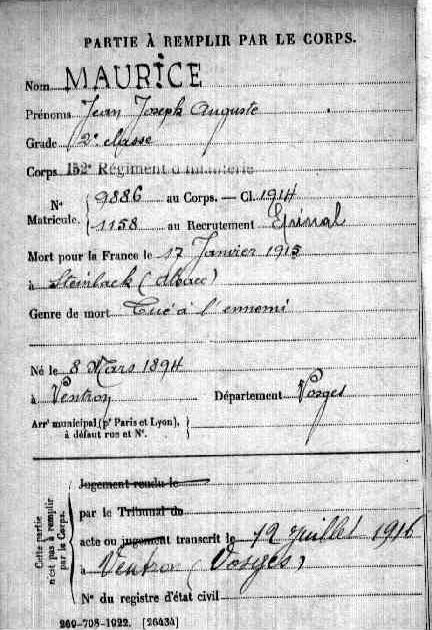 PARTIE À REMPLIR PAR LE CORPS.
Nom MAURICE
Prénoms Jean Joseph Auguste
Grade 2e classe
Corps 152e Régiment d'Infanterie
N° Matricule. { 9886 au Corps. — Cl. 1914
1158 au Recrutement Epinal
Mort pour la France le 17 Janvier 1915
à Steinback (Alsace)
Genre de mort Tué à l'ennemi
Né le 8 Mars 1894
à Ventron Département Vosges
Arrt municipal (pr Paris et Lyon),
à défaut rue et N°.
Cette partie n'est pas à remplir par le Corps.
Jugement rendu le
par le Tribunal de
acte ou jugement transcrit le 12 juillet 1916
à Ventron (Vosges)
N° du registre d'état civil
269-708-1922. [26434]